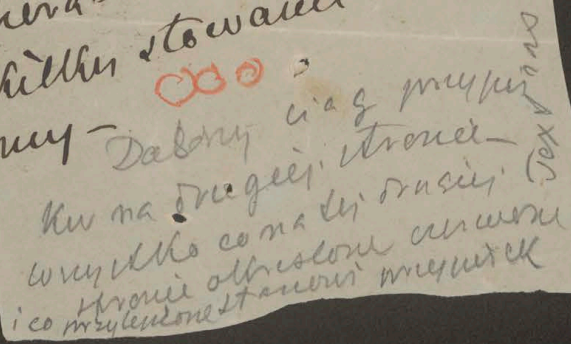 kilku słowami
Dalszy ciąg przypis
ku na drugiej stronie –
wszystko co na tej drugiej
stronie okreslone czerwono
i co przylepione stanowi przypisek